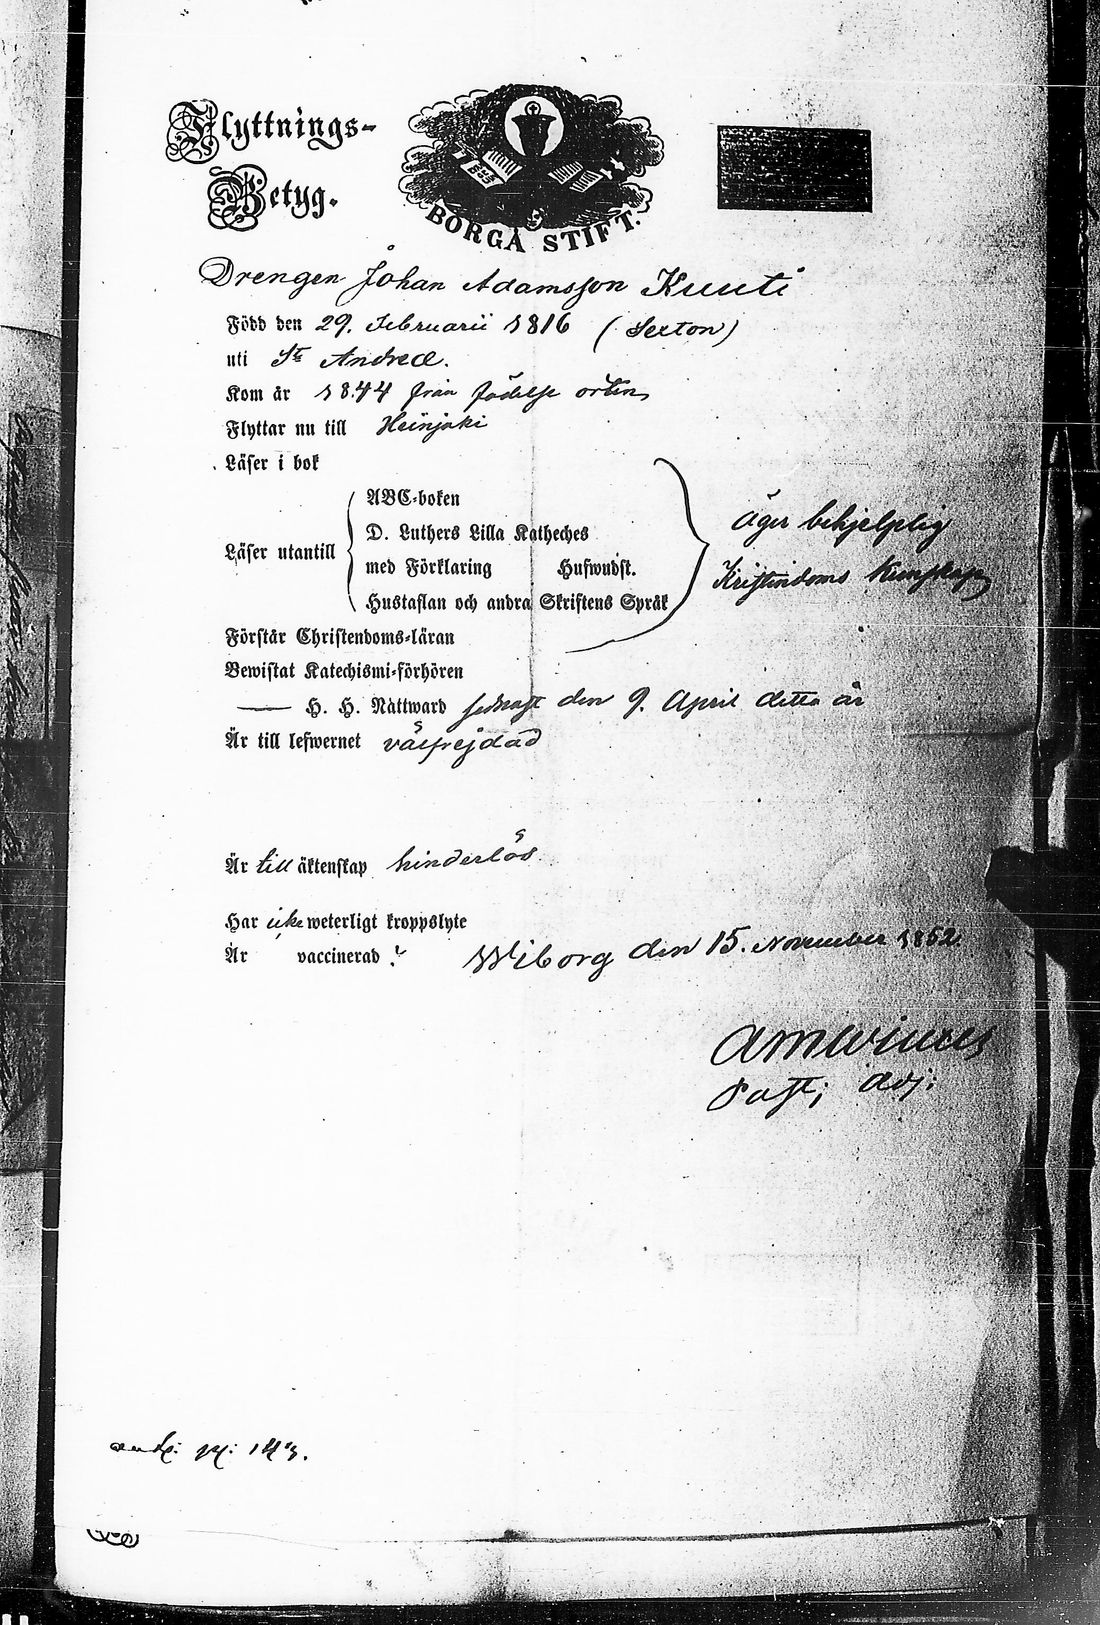 Flyttnings-
Betyg.
BORGÅ STIFT.
Drengen Johan Adamsson Kuuti
Född den 29. Februarii 1816 (Sexton)
uti St Andreæ.
Kom år 1844 från födelse orten
Flyttar nu till Heinjoki
Läser i bok
Läser utantill
ABC-boken
D. Luthers Lilla Katheches
med Förklaring Hufwudst.
Hustaflan och andra Skriftens Språk
äger behjelplig
Kristindoms kunskap
Förstår Christendoms-läran
Bewistat Katechismi-förhören
—— H. H. Nattward sednast den 9. April detta år
Är till lefwernet välfrejdad
Är till äktenskap hinderlös
Har icke weterligt kroppslyte
Är vaccinerad
Wiborg den 15. November 1852.
Past; Adj: